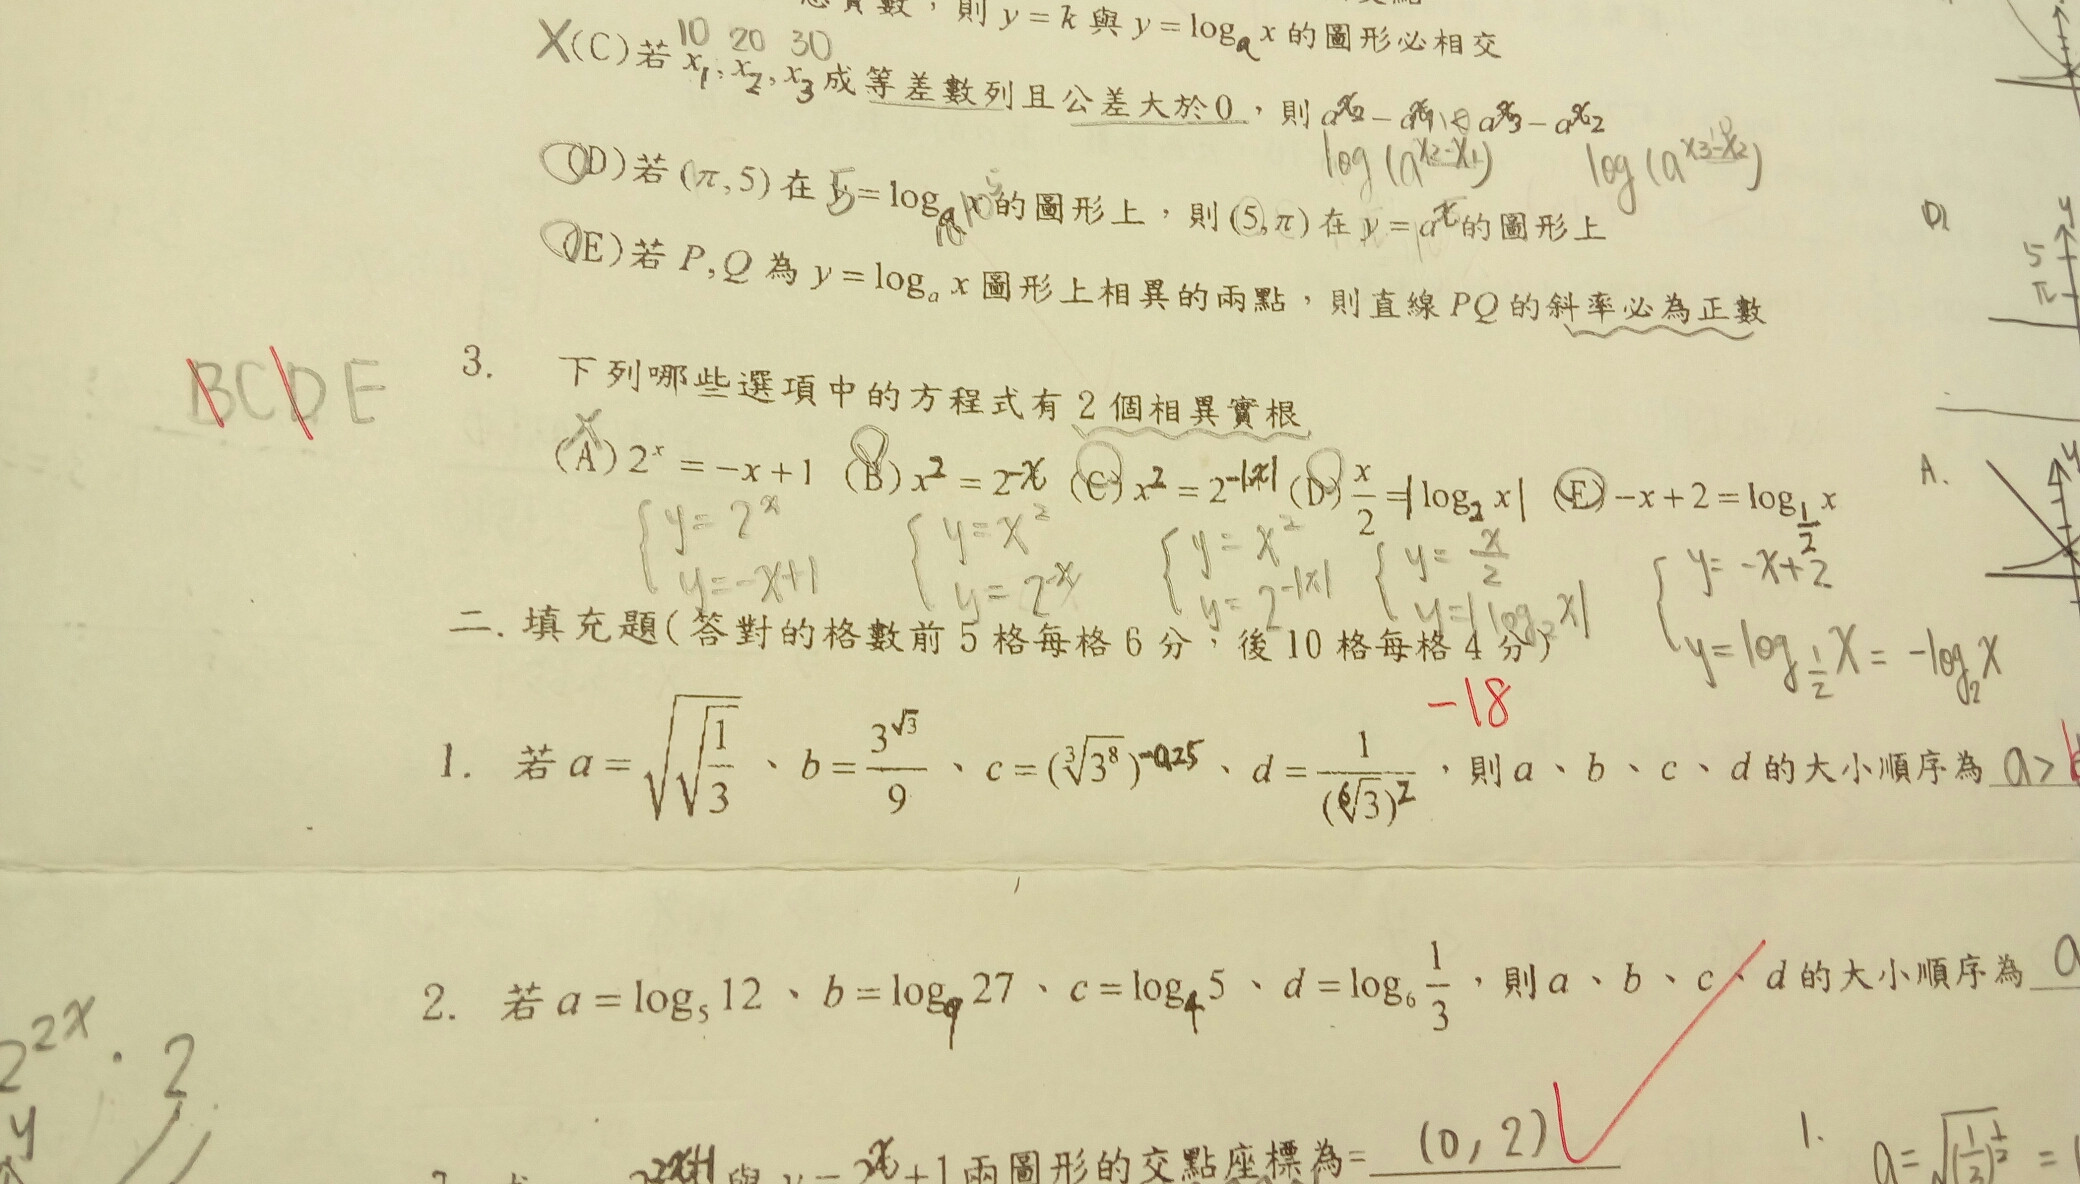 意實數，則 y = k 與 y = logₐ x 的圖形必相交
X (C) 若 x₁, x₂, x₃ 成等差數列且公差大於0，則 a^x₂ − a^x₁ < a^x₃ − a^x₂
10 20 30
log(a^(x₂-x₁)) log(a^(x₃-x₂))
(D) 若 (π, 5) 在 y = logₐ x 的圖形上，則 (5, π) 在 y = a^x 的圖形上
(E) 若 P, Q 為 y = logₐ x 圖形上相異的兩點，則直線 PQ 的斜率必為正數
D.
y
5
π
BCDE
3. 下列哪些選項中的方程式有 2 個相異實根
(A) 2^x = −x + 1 (B) x² = 2^-x (C) x² = 2^-|x| (D) x/2 = |log₂ x| (E) −x + 2 = log_1/2 x
A.
y
{ y = 2^x
y = -x+1
{ y = x²
y = 2^-x
{ y = x²
y = 2^-|x|
{ y = x/2
y = |log₂ x|
{ y = -x+2
y = log_1/2 x = -log₂ x
二. 填充題(答對的格數前 5 格每格 6 分，後 10 格每格 4 分)
-18
1. 若 a = √√(1/3) 、 b = 3^√3/9 、 c = (∛3⁸)^-0.25 、 d = 1/(⁶√3)² ，則 a 、 b 、 c 、 d 的大小順序為 a> b
2. 若 a = log₅ 12 、 b = log₉ 27 、 c = log₄ 5 、 d = log₆ 1/3 ，則 a 、 b 、 c 、 d 的大小順序為 a
2^2x · 2
y
2^x + 1 兩圖形的交點座標為= (0, 2)
1.
a = √(1/3)^1/2 =